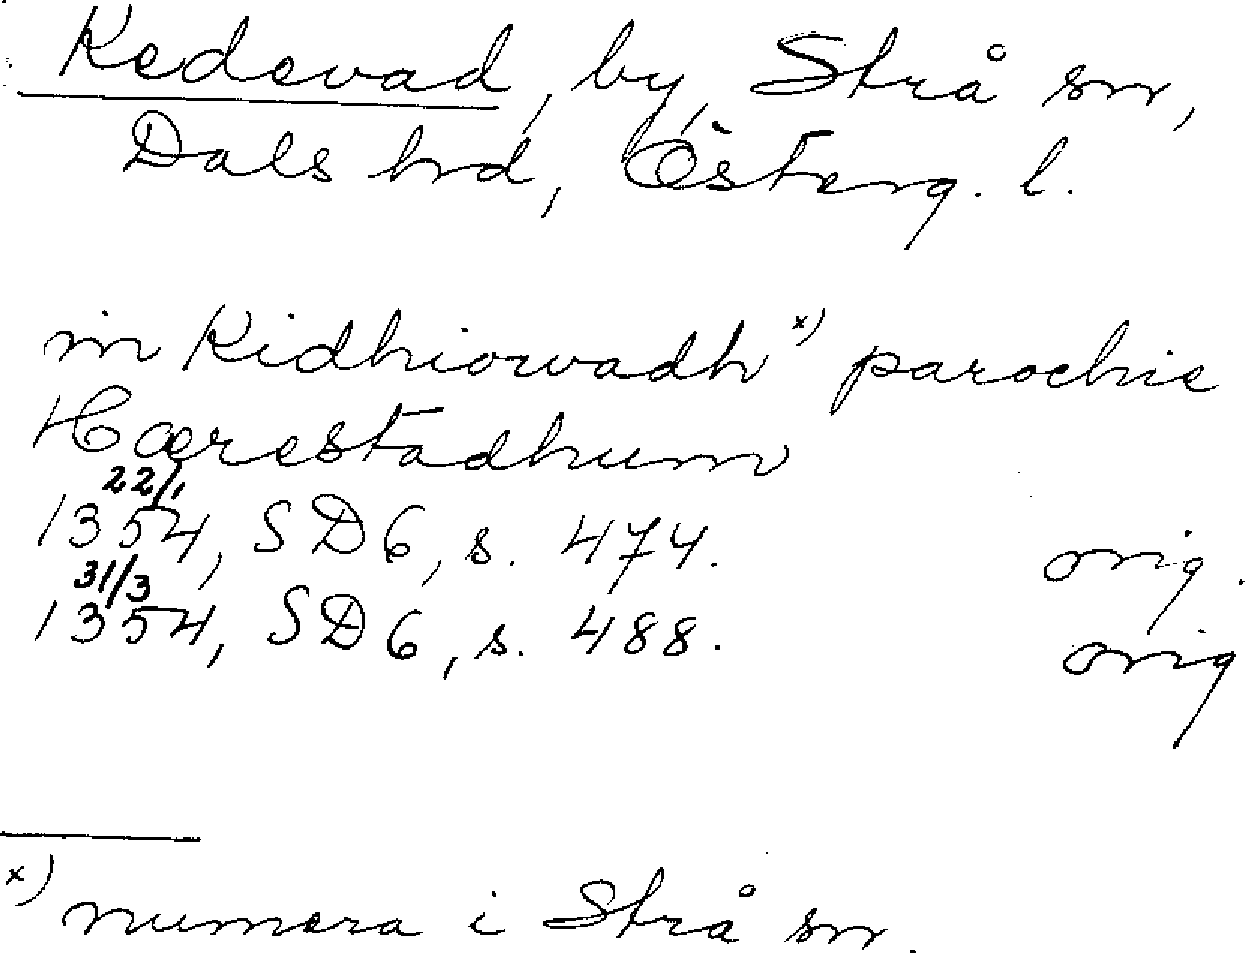 Kedevad, by, Strå sn,
Dals hd, Österg. l.
in Kidhiorvadh x) parochie
Hærestadhum
22/1
1354, SD 6, s. 474. orig.
31/3
1354, SD 6, s. 488. orig
x) numera i Strå sn.